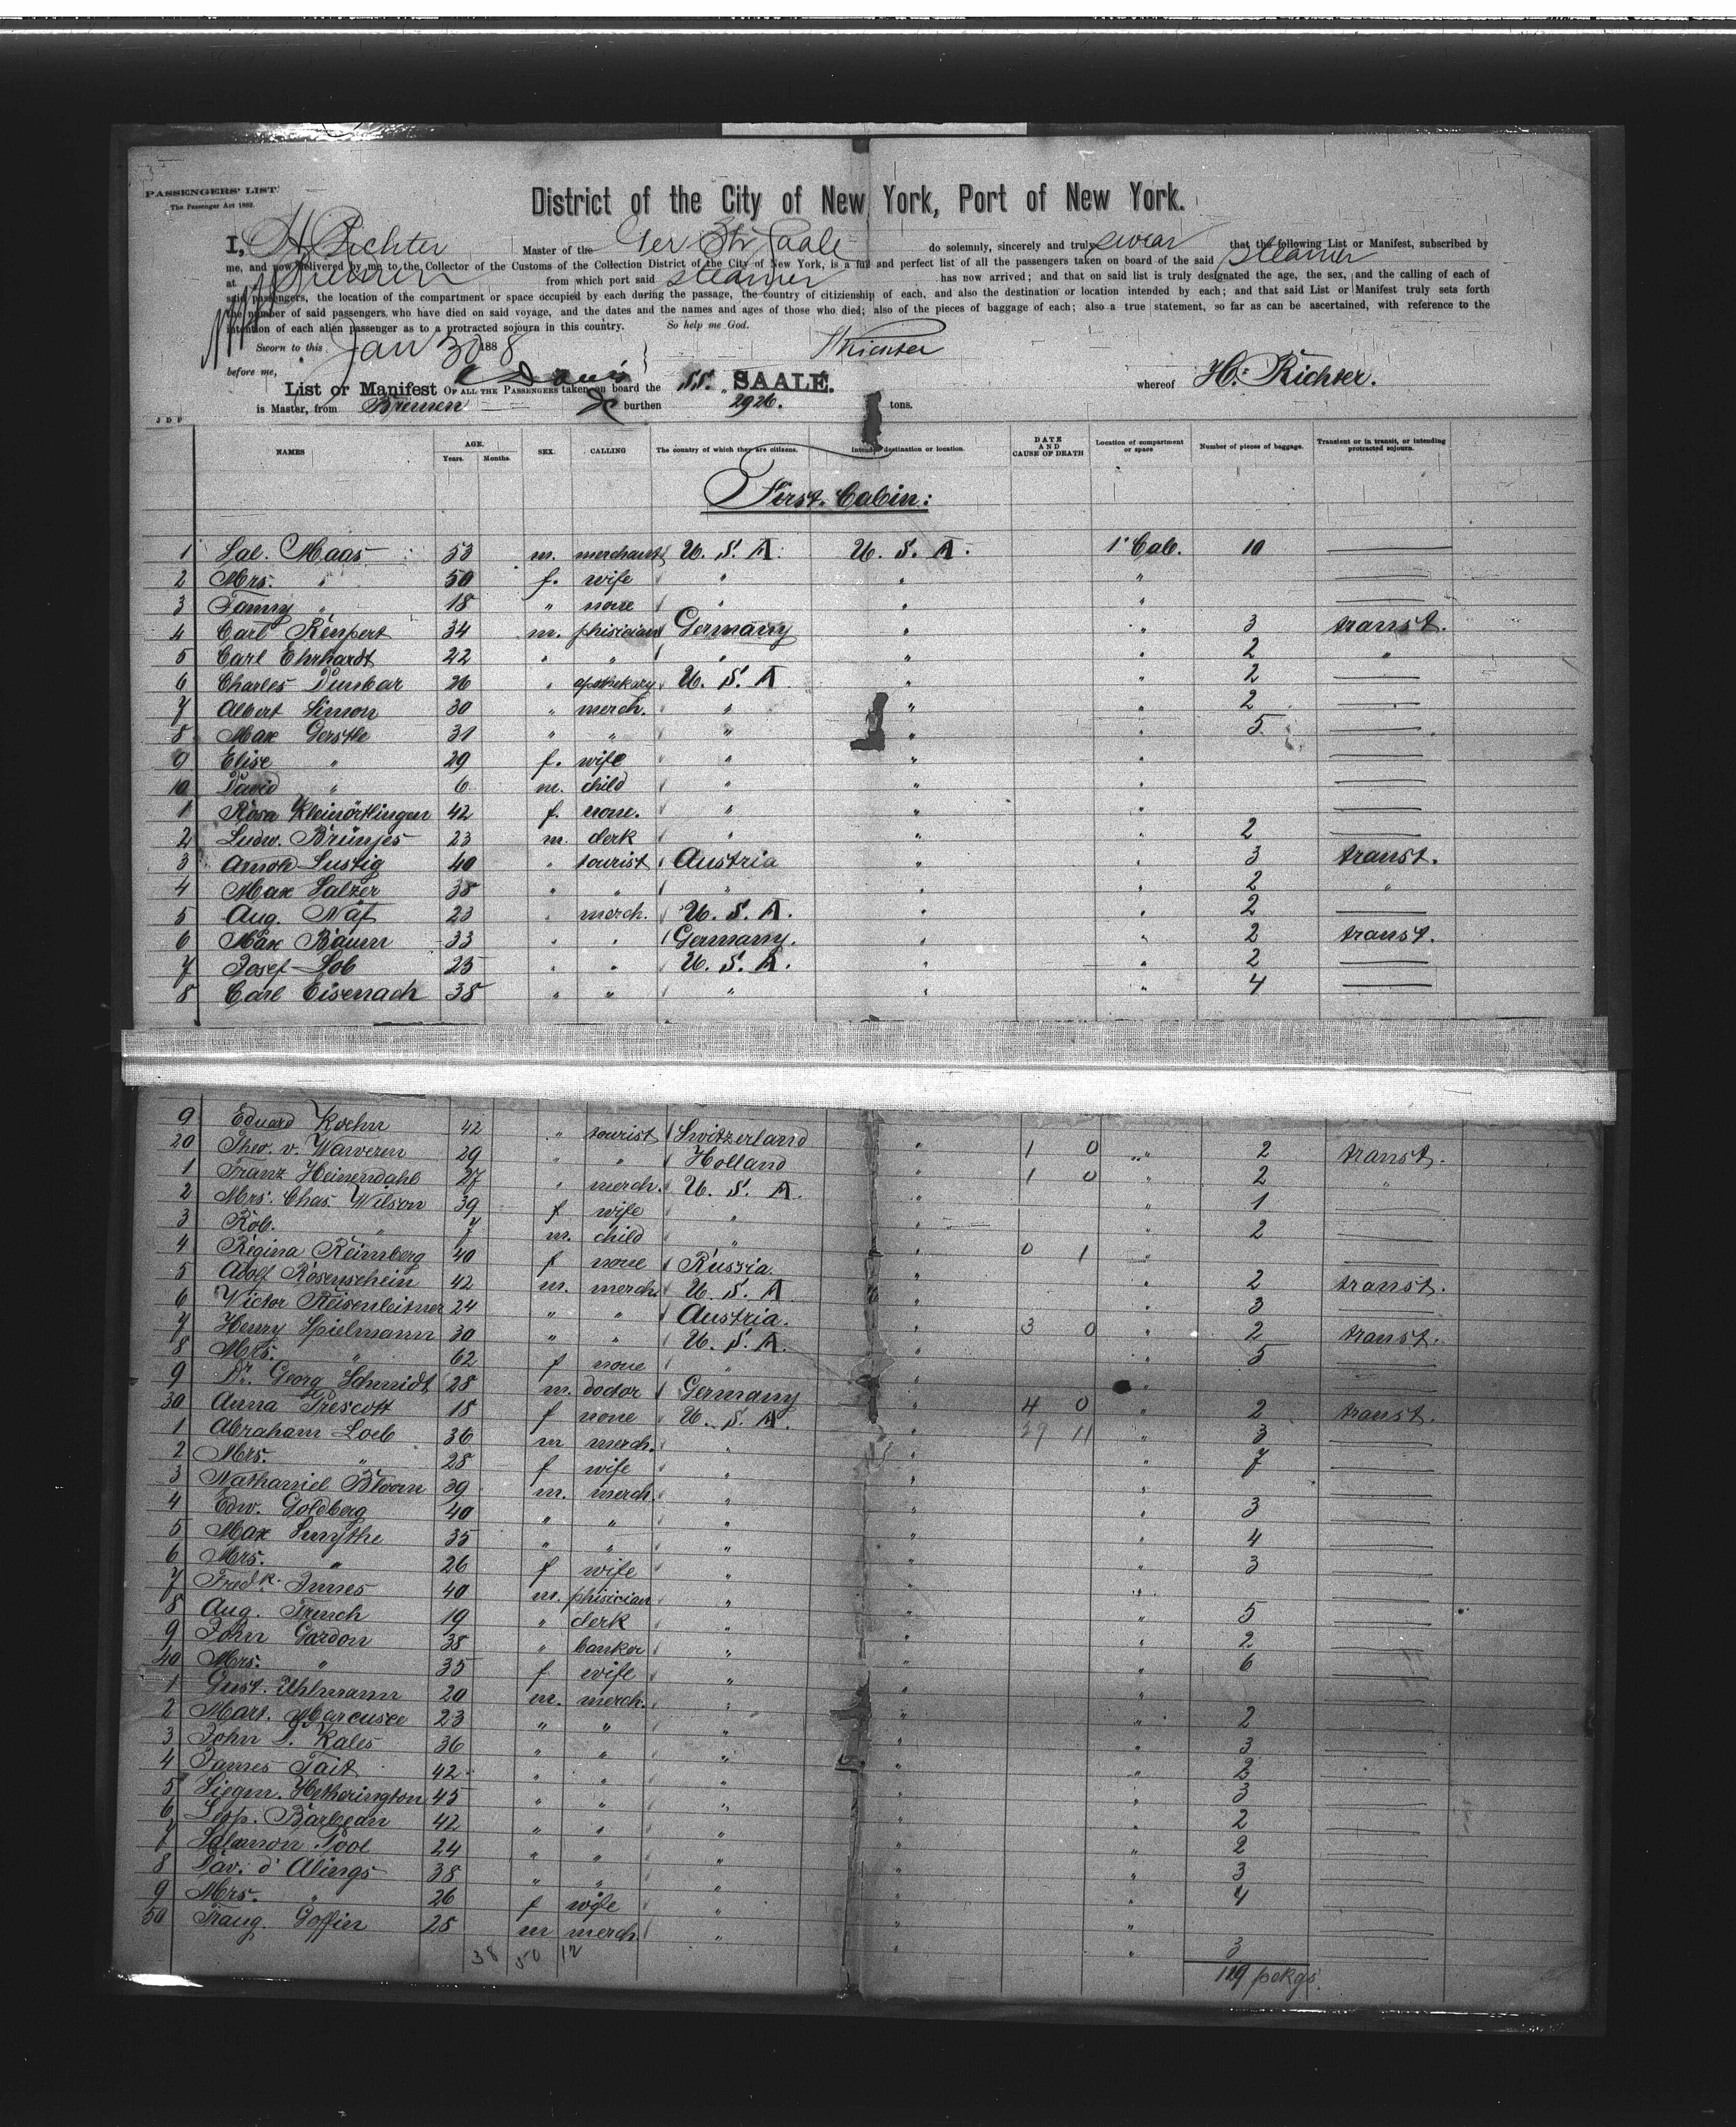 PASSENGERS' LIST.
The Passenger Act 1882.
District of the City of New York, Port of New York.
I, H Richter Master of the Ger Str Saale do solemnly, sincerely and truly swear that the following List or Manifest, subscribed by
me, and now delivered by me to the Collector of the Customs of the Collection District of the City of New York, is a full and perfect list of all the passengers taken on board of the said steamer
at Bremen from which port said steamer has now arrived; and that on said list is truly designated the age, the sex, and the calling of each of
said passengers, the location of the compartment or space occupied by each during the passage, the country of citizienship of each, and also the destination or location intended by each; and that said List or Manifest truly sets forth
the number of said passengers who have died on said voyage, and the dates and the names and ages of those who died; also of the pieces of baggage of each; also a true statement, so far as can be ascertained, with reference to the
intention of each alien passenger as to a protracted sojourn in this country. So help me God.
Sworn to this Jan 30 1888 H Richter
before me,
List or Manifest OF ALL THE PASSENGERS taken on board the S.S. "SAALE. whereof H. Richter.
is Master, from Bremen burthen 2926. tons.
J D P
NAMES AGE. Years. Months. SEX. CALLING The country of which they are citizens. Intended destination or location. DATE AND CAUSE OF DEATH Location of compartment or space Number of pieces of baggage. Transient or in transit, or intending protracted sojourn.
First Cabin:
1 Sal. Maas 53 m. merchant U. S. A. U. S. A. 1' Cab. 10
2 Mrs. " 50 f. wife " " "
3 Fanny " 18 " none " " "
4 Carl Rempert 34 m. phisician Germany " " 3 transt.
5 Carl Ehrhardt 22 " " " " " 2 "
6 Charles Dunbar 26 " apothekary U. S. A " " 2
7 Albert Simon 30 " merch. " " " 2
8 Max Gerstle 31 " " " " " 5
9 Elise " 29 f. wife " " "
10 David " 6 m. child " " "
1 Rosa Kleinörtlingen 42 f. none. " " "
2 Ludw. Brünjes 23 m. clerk " " " 2
3 Arnold Lustig 40 " tourist Austria " " 3 transt.
4 Max Salzer 38 " " " " " 2 "
5 Aug. Näf 23 " merch. U. S. A. " " 2
6 Max Baum 33 " " Germany. " " 2 transt.
7 Josef Lob 25 " " U. S. A. " " 2
8 Carl Eisenach 38 " " " " " 4
9 Eduard Koehn 42 " tourist Switzerland " 1 0 " 2 transt.
20 Theo. v. Waveren 29 " " Holland " 1 0 " 2 "
1 Franz Heinendahl 27 " merch. U. S. A. " " 1
2 Mrs. Chas. Wilson 39 f wife " " " 2
3 Rob. " 7 m. child " " "
4 Regina Reimberg 40 f none Russia. " 0 1 " 2 transt.
5 Adolf Rosenschein 42 m. merch. U. S. A " " 3
6 Victor Reisenleitner 24 " " Austria. " 3 0 " 2 transt.
7 Henry Spielmann 30 " " U. S. A. " " 5
8 Mrs. " 62 f none " " "
9 Dr. Georg Schmidt 28 m. doctor Germany " 4 0 " 2 transt.
30 Anna Prescott 18 f none U. S. A. " 39 11 " 3
1 Abraham Loeb 36 m merch. " " " 7
2 Mrs. " 28 f wife " " "
3 Nathaniel Bloom 39 m. merch. " " " 3
4 Edw. Goldberg 40 " " " " " 4
5 Max Smythe 35 " " " " " 3
6 Mrs. " 26 f wife " " "
7 Fredk. Innes 40 m. phisician " " " 5
8 Aug. French 19 " clerk " " " 2
9 John Gordon 38 " banker " " " 6
40 Mrs. " 35 f wife " " "
1 Gust. Uhlmann 20 m. merch. " " " 2
2 Mart. Marcusee 23 " " " " " 3
3 John S. Kales 36 " " " " " 2
4 James Tait 42 " " " " " 3
5 Siegm. Hetherington 45 " " " " " 2
6 Leop. Barbean 42 " " " " " 2
7 Salamon Pool 24 " " " " " 3
8 Dav. d'Alings 38 " " " " " 4
9 Mrs. " 26 f wife " " "
50 Traug. Goffin 25 m merch. " " " 3
38 50 12 129 pckgs.